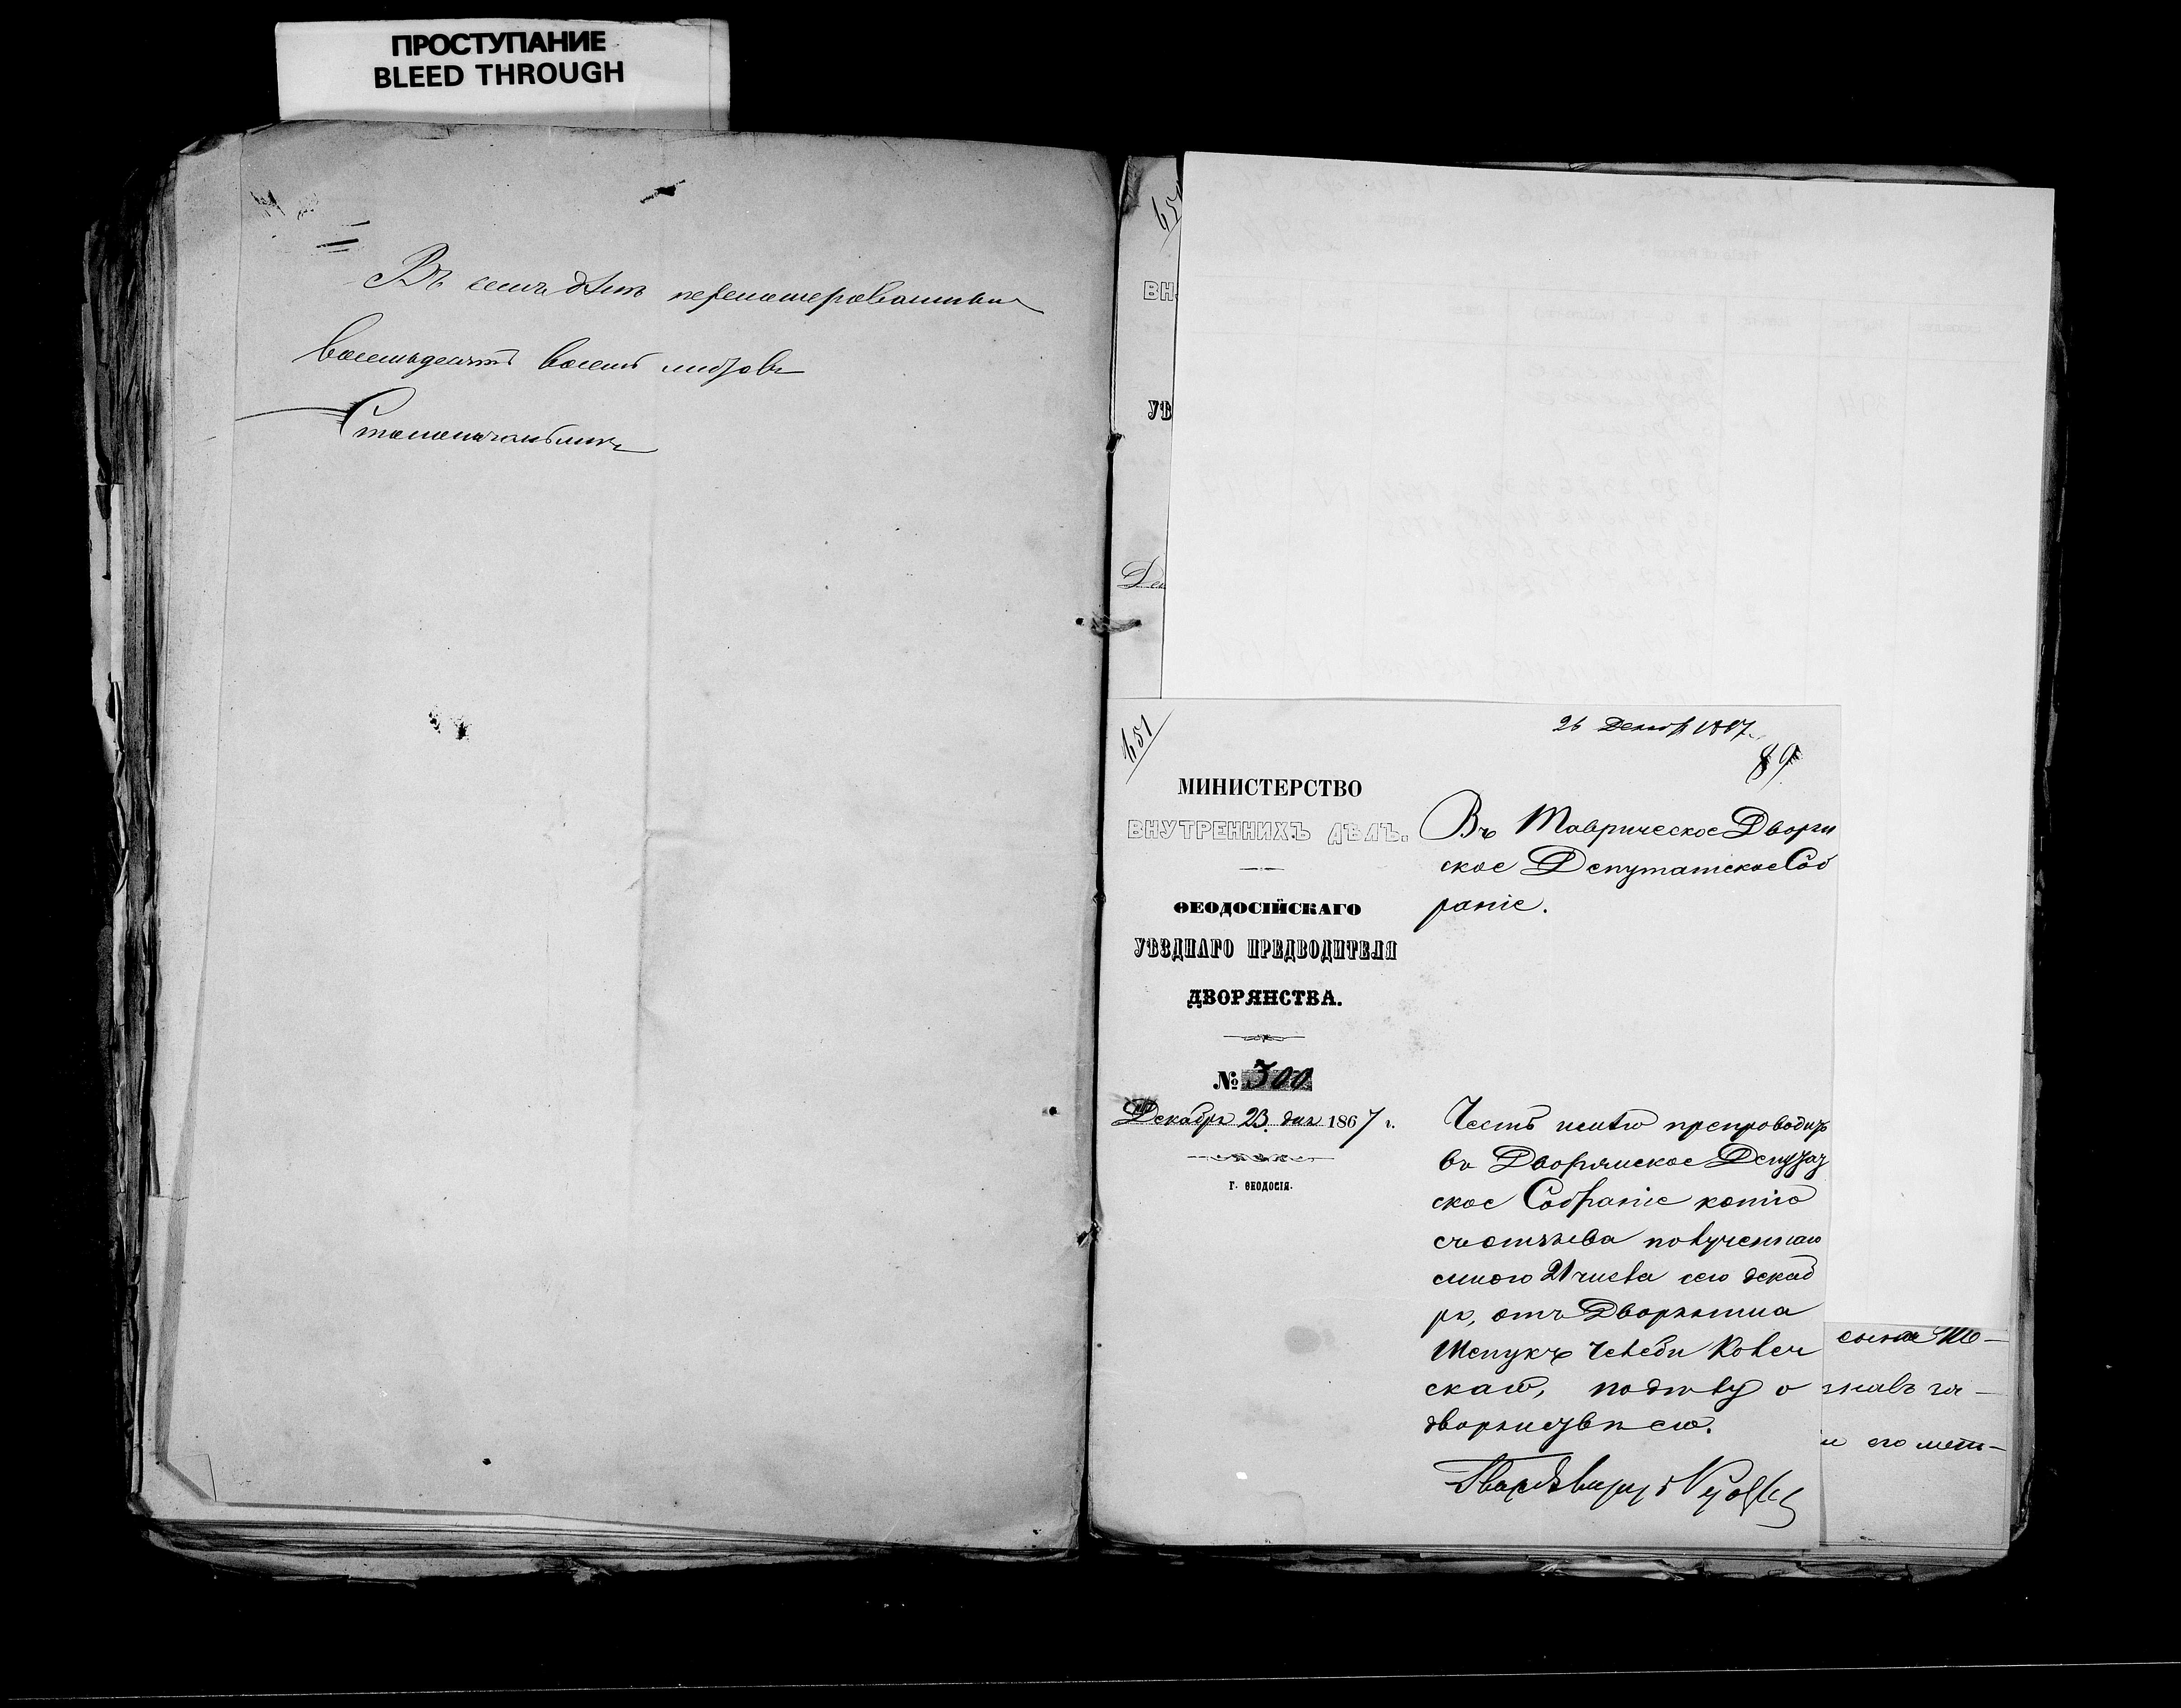 ПРОСТУПАНИЕ
BLEED THROUGH
Въ семъ дѣлѣ перенумерованныхъ
восемьдесятъ восемь листовъ
Столоначальникъ
ВН
УѢ
Дек
651
26 Декаб 1867
89
МИНИСТЕРСТВО
ВНУТРЕННИХЪ ДѢЛЪ.
ѲЕОДОСІЙСКАГО
УѢЗДНАГО ПРЕДВОДИТЕЛЯ
ДВОРЯНСТВА.
№ 300
Декабря 23 дня 1867 г.
Г. ѲЕОДОСІЯ.
Въ Таврическое Дворян
ское Депутатское Соб
раніе.
Честь имѣю препроводить
въ Дворянское Депутат
ское Собраніе копію
съ отзыва полученнаго
мною 21 числа сего декаб
ря, отъ Дворянина
Челеби
скаго, по дѣлу о
дворянствѣ его.
сына
и его